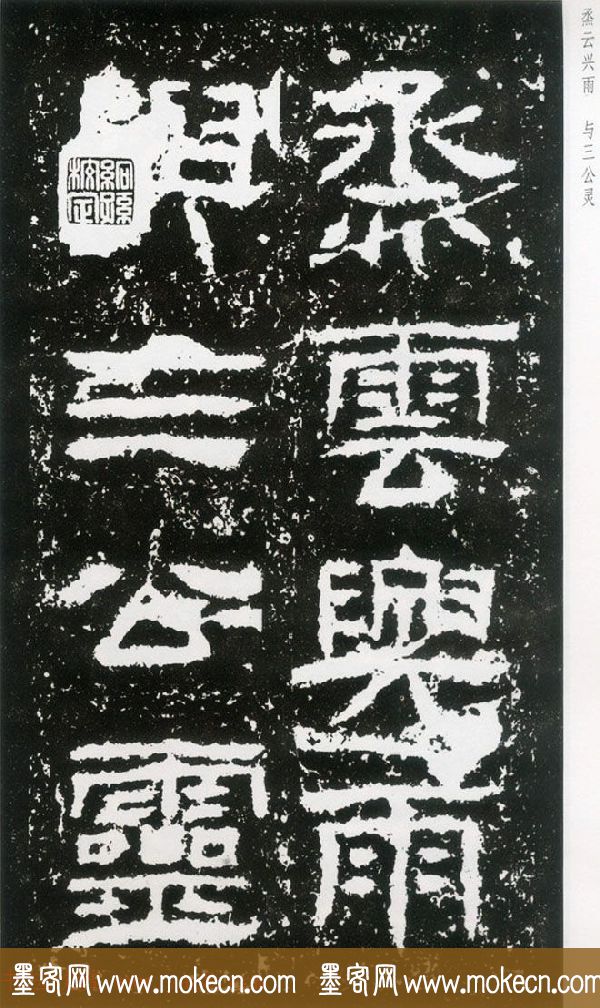 烝云兴雨 与三公灵
烝雲興雨
與三公靈
墨客网 www.mokecn.com 墨客网 www.mokecn.com